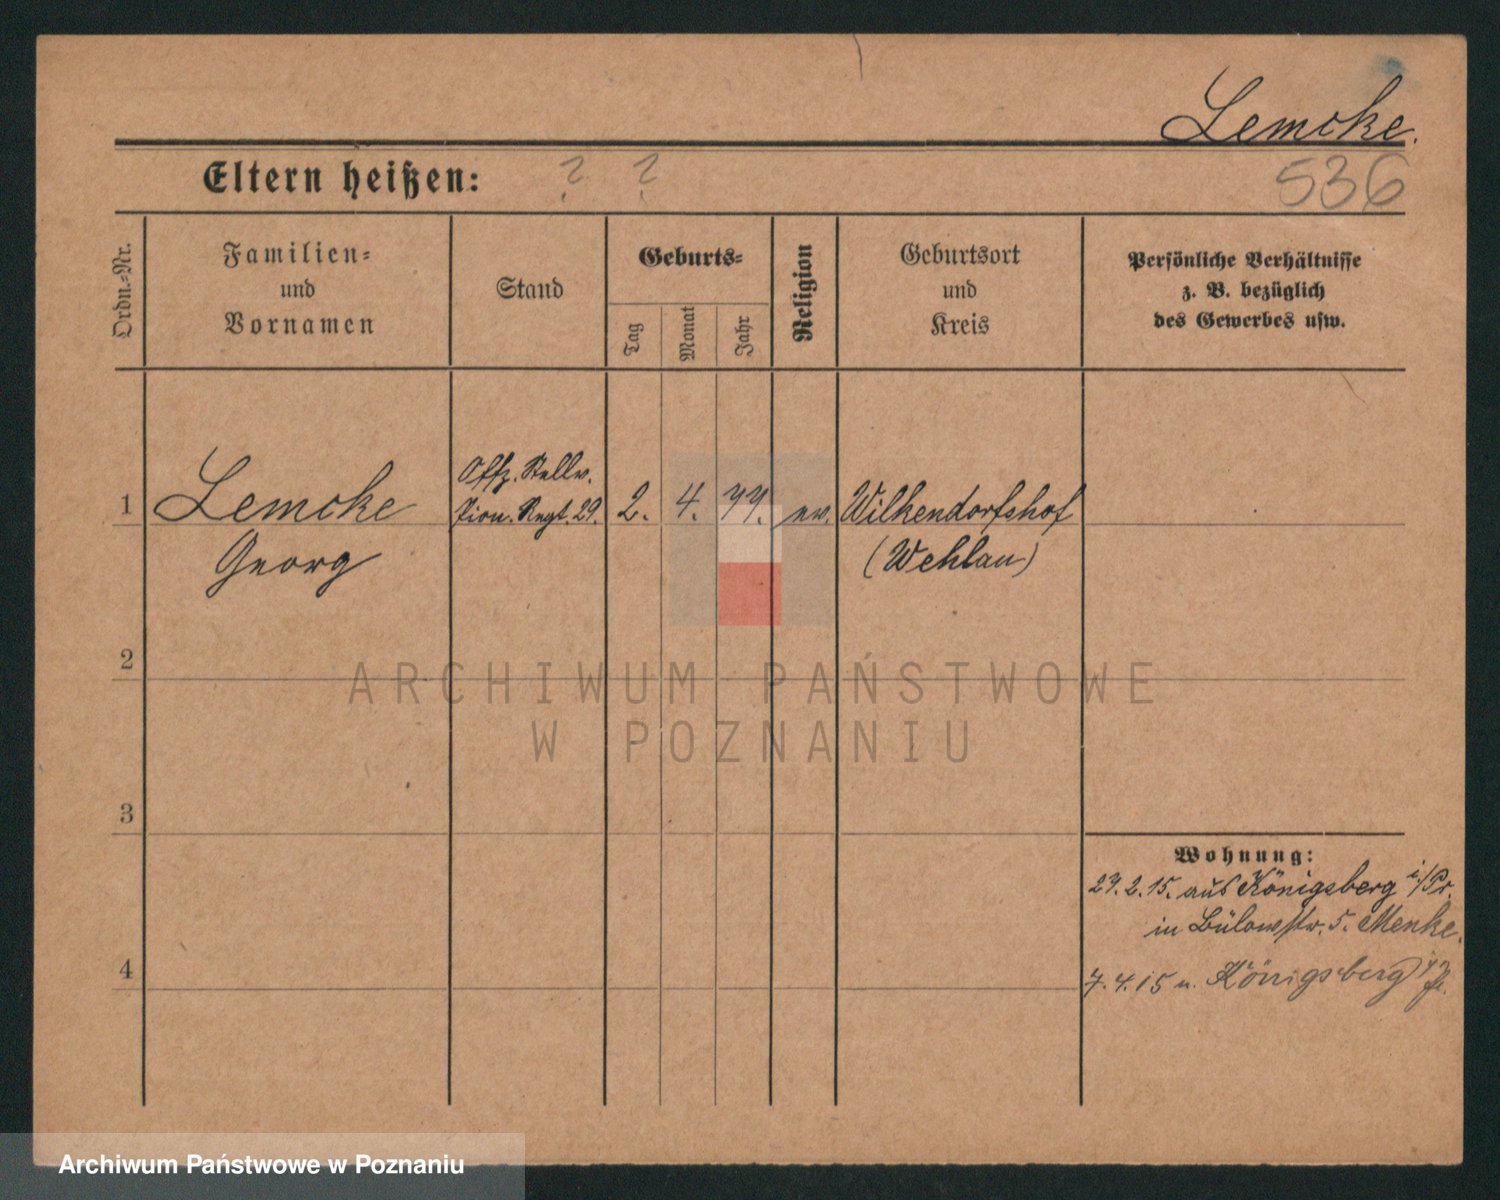 Lemcke.
Eltern heißen: ? ?
536
Ordn.-Nr.
Familien-
und
Vornamen
Stand
Geburts-
Tag
Monat
Jahr
Religion
Geburtsort
und
Kreis
Persönliche Verhältnisse
z. B. bezüglich
des Gewerbes usw.
1
Lemcke
Georg
Offz. Stellv.
Pion. Regt. 29.
2. 4. 77. ev.
Wilkendorfshof
(Wehlau)
2
ARCHIWUM PAŃSTWOWE
W POZNANIU
3
4
Wohnung:
27.2.15. aus Königsberg i/Pr.
in Bülowstr. 5. Menke.
7.4.15 n. Königsberg i/Pr.
Archiwum Państwowe w Poznaniu